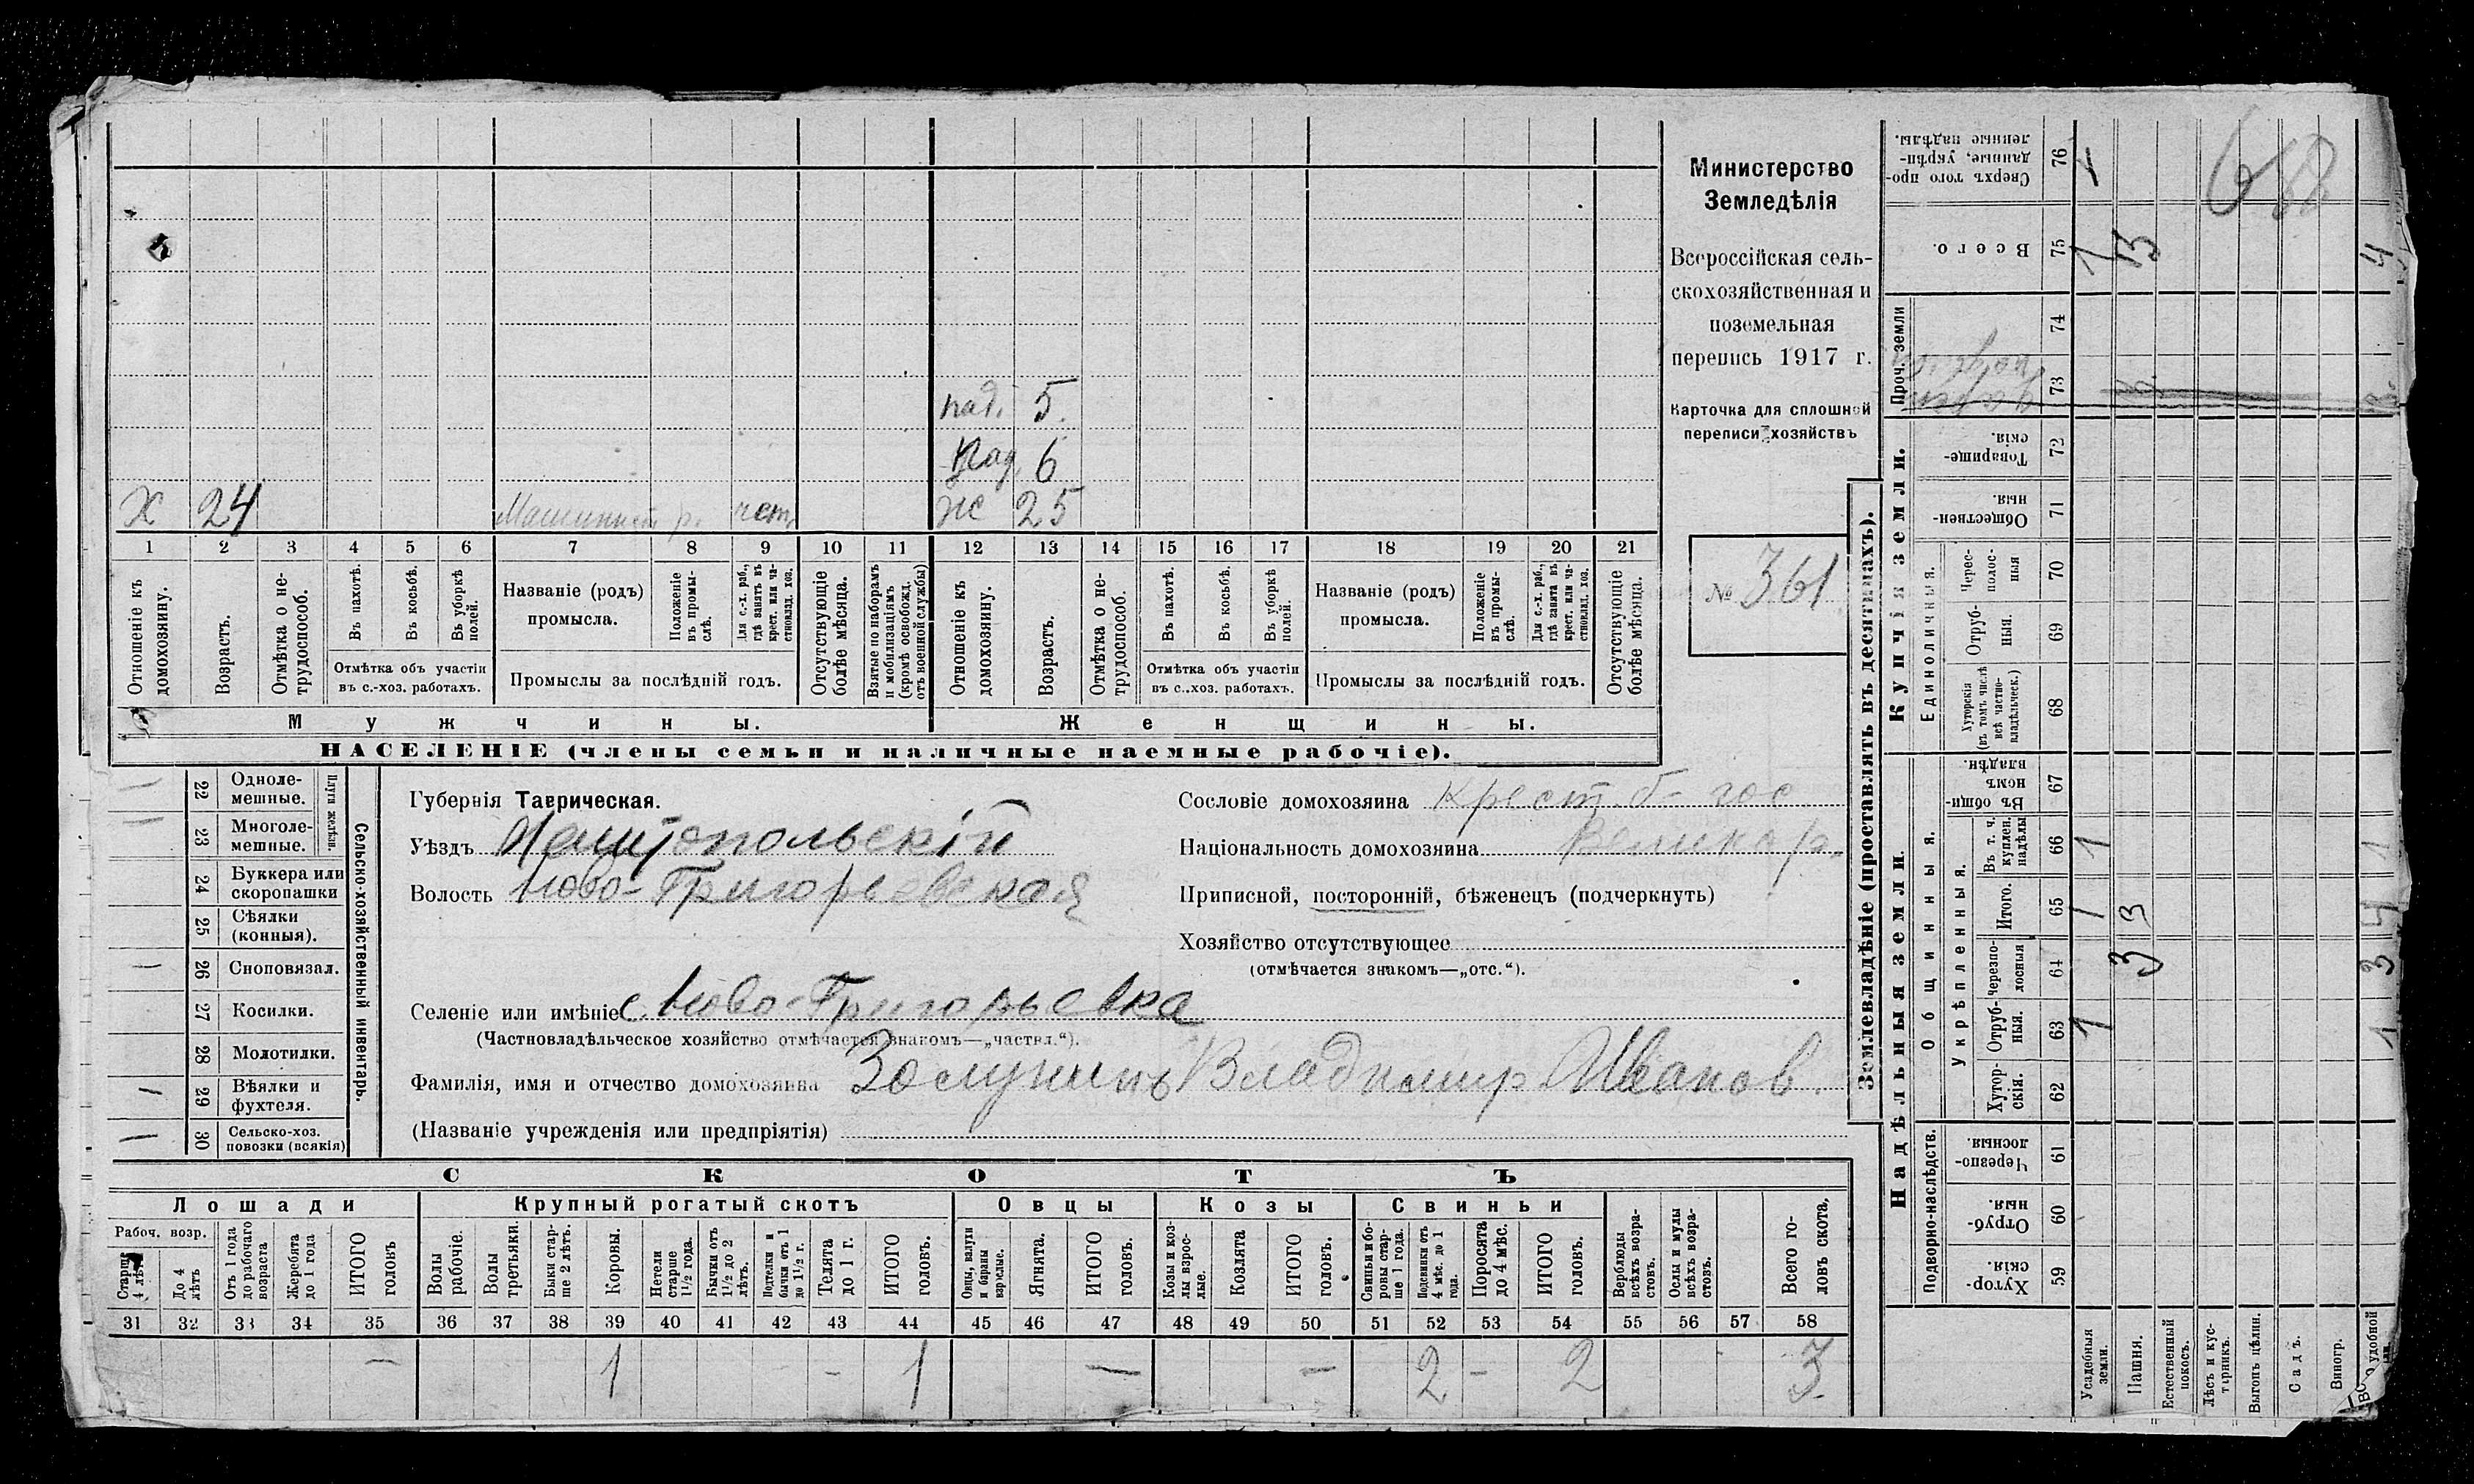 Министерство
Земледѣлія
Всероссійская сель-
скохозяйственная и
поземельная
перепись 1917 г.
Карточка для сплошной
переписи хозяйствъ
№ 361
пад. 5.
пад. 6
х 24 р. ж 25
1 2 3 4 5 6 7 8 9 10 11 12 13 14 15 16 17 18 19 20 21
Отношеніе къ домохозяину.
Возрастъ.
Отмѣтка о не-трудоспособ.
Въ пахотѣ.
Въ косьбѣ.
Въ уборкѣ полей.
Отмѣтка объ участіи
въ с.-хоз. работахъ.
Названіе (родъ)
промысла.
Положеніе въ промы-слѣ.
Для с.-х. раб., гдѣ занятъ въ крест. или ча-стновлад. хоз.
Промыслы за послѣдній годъ.
Отсутствующіе болѣе мѣсяца.
Взятые по наборамъ и мобилизаціямъ (кромѣ освобожд. отъ военной службы)
Отношеніе къ домохозяину.
Возрастъ.
Отмѣтка о не-трудоспособ.
Въ пахотѣ.
Въ косьбѣ.
Въ уборкѣ полей.
Отмѣтка объ участіи
въ с.-хоз. работахъ.
Названіе (родъ)
промысла.
Положеніе въ промы-слѣ.
Для с.-х. раб., гдѣ занята въ крест. или ча-стновлад. хоз.
Промыслы за послѣдній годъ.
Отсутствующіе болѣе мѣсяца.
Мужчины. Женщины.
НАСЕЛЕНІЕ (члены семьи и наличные наемные рабочіе).
Сельско-хозяйственный инвентарь.
Плуги желѣзн.
22 Одноле-мешные.
23 Многоле-мешные.
24 Буккера или скоропашки
25 Сѣялки (конныя).
— 26 Сноповязал.
27 Косилки.
28 Молотилки.
29 Вѣялки и фухтеля.
30 Сельско-хоз. повозки (всякія)
Губернія Таврическая.
Уѣздъ
Волость Ново-Григорьевская
Селеніе или имѣніе с. Ново-Григорьевка
(Частновладѣльческое хозяйство отмѣчается знакомъ—„частвл.“).
Фамилія, имя и отчество домохозяина Владимир Иванов.
(Названіе учрежденія или предпріятія)
Сословіе домохозяина Крест. б. гос
Національность домохозяина Великор.
Приписной, посторонній, бѣженец (подчеркнуть)
Хозяйство отсутствующее
(отмѣчается знакомъ—„отс.“).
СКОТЪ
Лошади Крупный рогатый скотъ Овцы Козы Свиньи
Рабоч. возр.
Старше 4 лѣтъ
До 4 лѣтъ
Отъ 1 года до рабочаго возраста
Жеребята до 1 года
ИТОГО головъ
Волы рабочіе.
Волы третьяки.
Быки стар-ше 2 лѣтъ.
Коровы.
Нетели старше 1½ года.
Бычки отъ 1½ до 2 лѣтъ.
бычки отъ 1 до 1½ г.
Телята до 1 г.
ИТОГО головъ.
Овцы, валухи и бараны взрослые.
Ягнята.
ИТОГО головъ.
Козы и коз-лы взрос-лые.
Козлята
ИТОГО головъ.
Свиньи и бо-ровы стар-ше 1 года.
Подсвинки отъ 4 мѣс. до 1 года.
Поросята до 4 мѣс.
ИТОГО головъ.
Верблюды всѣхъ возра-стовъ.
Ослы и мулы всѣхъ возра-стовъ.
Всего го-ловъ скота.
31 32 33 34 35 36 37 38 39 40 41 42 43 44 45 46 47 48 49 50 51 52 53 54 55 56 57 58
— 1 - 1 — — 2 - 2 3
Землевладѣніе (проставлять въ десятинахъ).
Надѣльныя земли.
Купчія земли.
Проч. земли
Подворно-наслѣдств.
Общинныя.
Укрѣпленныя.
Единоличныя.
76 Сверхъ того про-данные, укрѣп-ленные надѣлы.
75 Всего. 1 3 4
74
73
72 Товарище-скія.
71 Обществен-ныя.
70 Черес-полос-ныя
69 Отруб-ныя.
68 Хуторскія (въ томъ числѣ всѣ частно-владѣльческ.)
67 Въ общин-номъ владѣн.
66 Въ т. ч. куплен. надѣлы 1 1
65 Итого. 1 3 4
64 Черезпо-лосныя 3 3
63 Отруб-ныя. 1 1
62 Хутор-скія.
61 Черезпо-лосныя.
60 Отруб-ныя.
59 Хутор-скія.
Усадебныя земли.
Пашня.
Естественный покосъ.
Лѣсъ и кус-тарникъ.
Выгонъ цѣлин.
Садъ.
Виногр.
удобной